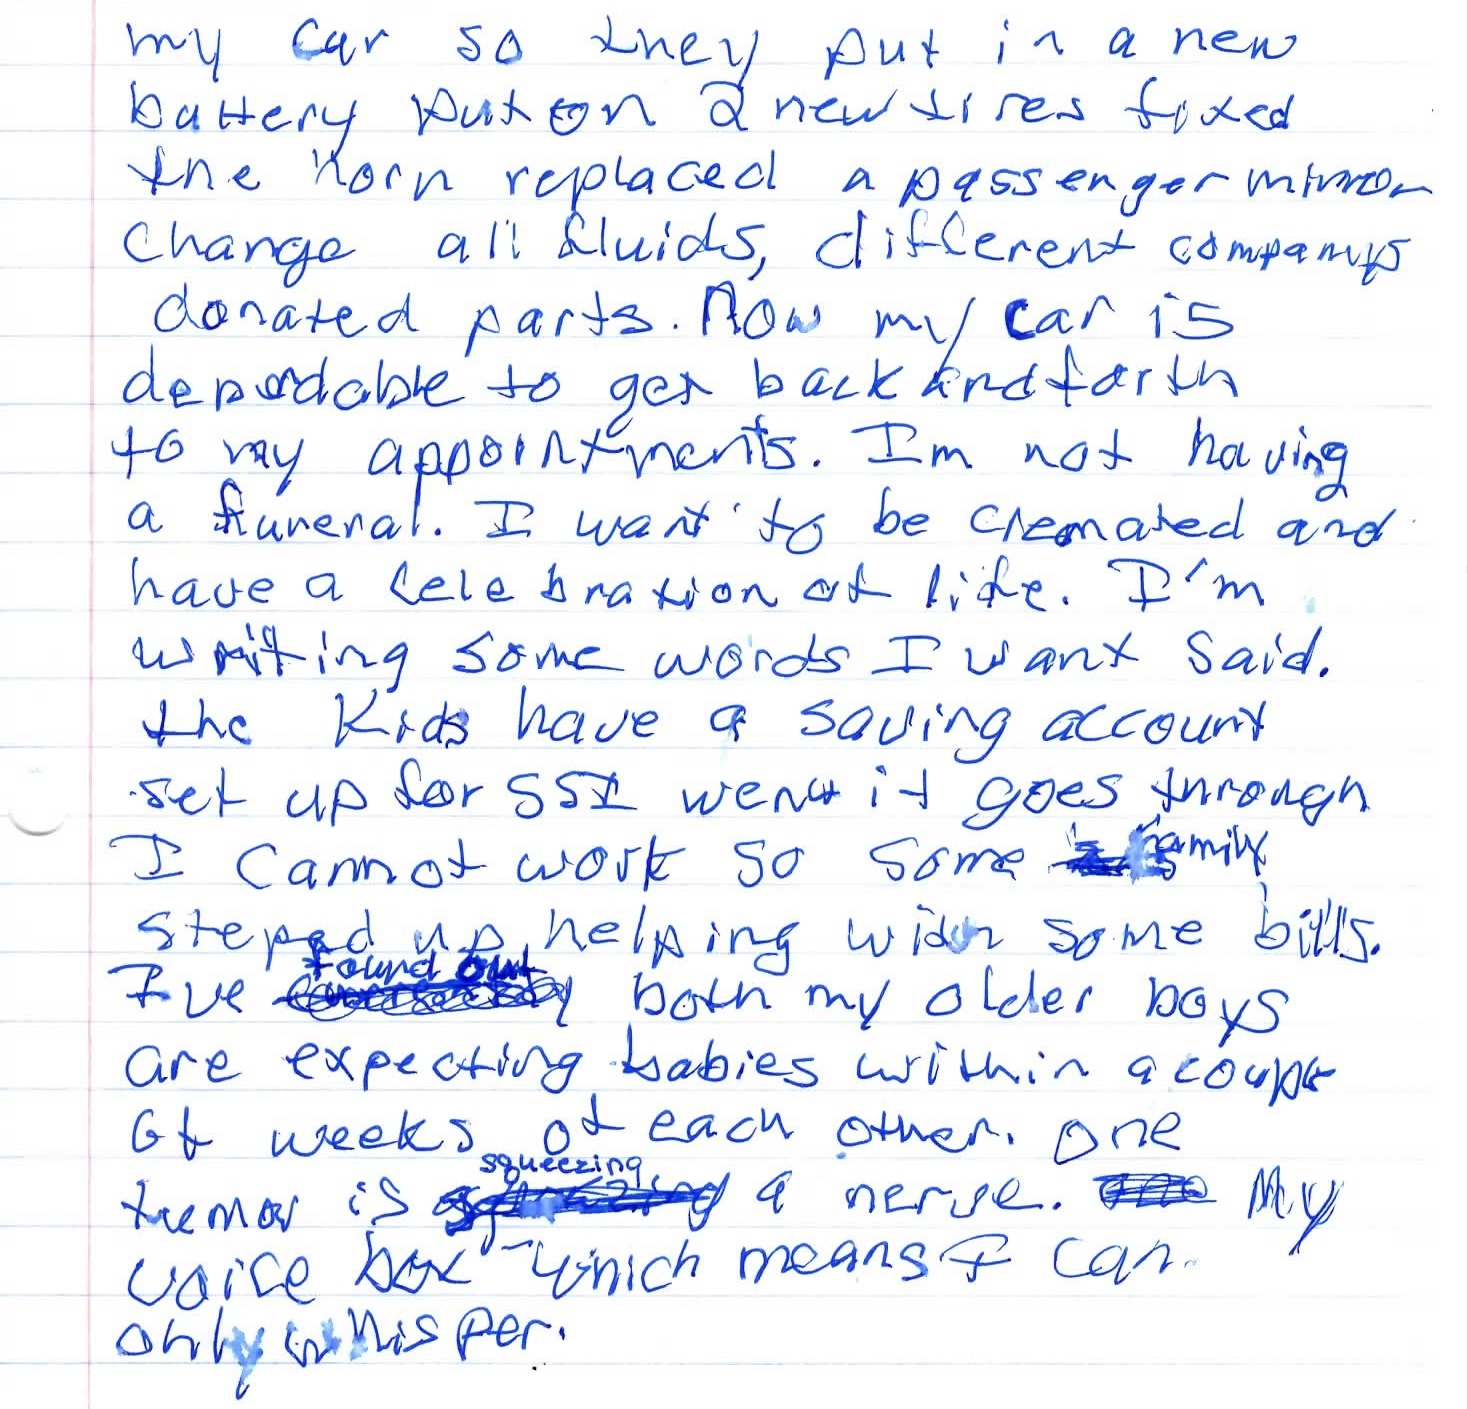 my car so they put in a new
battery put on 2 new tires fixed
the horn replaced a passenger mirror
change all fluids, different companys
donated parts. Now my car is
dependable to get back and forth
to my appointments. Im not having
a funeral. I want to be cremated and
have a celebration of life. I'm
writing some words I want said.
the kids have a saving account
set up for SSI went it goes through
I cannot work so some family
steped up helping with some bills.
I've found out both my older boys
are expecting babies within a couple
of weeks of each other. one
tumor is squeezing a nerve. My
voice box which means I can
only whisper.